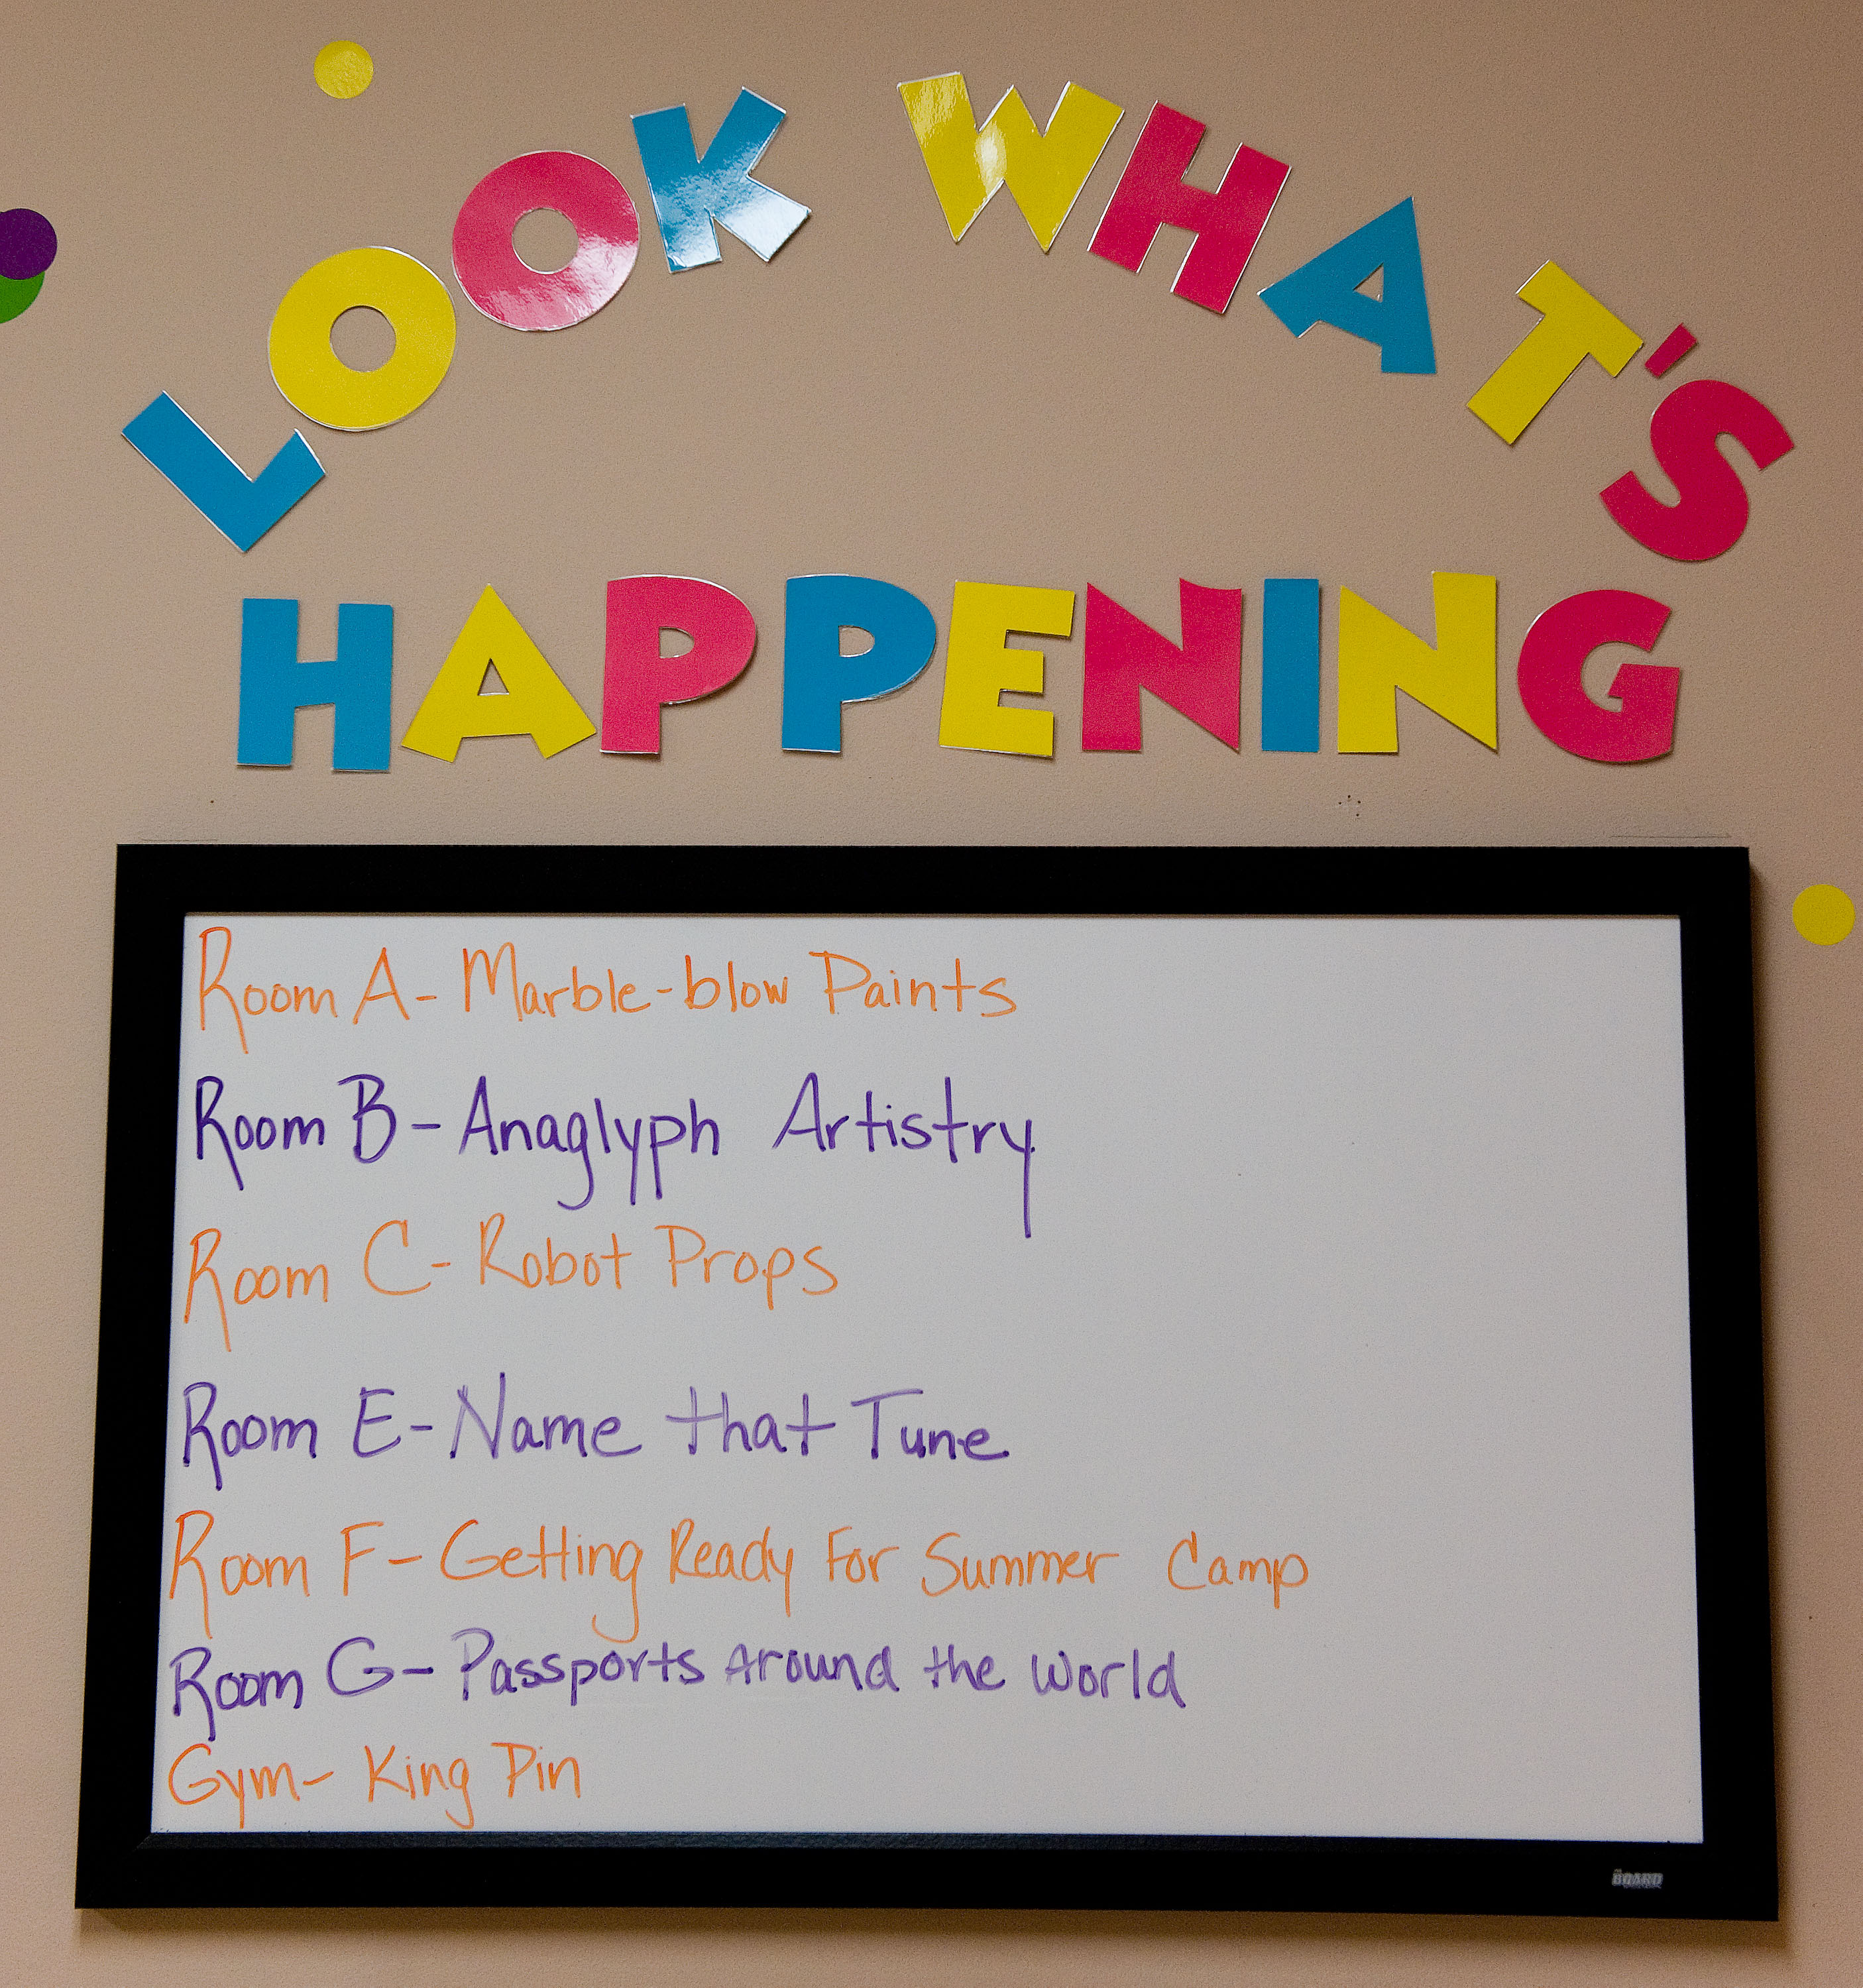 LOOK WHAT'S
HAPPENING
Room A- Marble-blow Paints
Room B- Anaglyph Artistry
Room C- Robot Props
Room E- Name that Tune
Room F- Getting Ready For Summer Camp
Room G- Passports Around the World
Gym- King Pin
BOARD